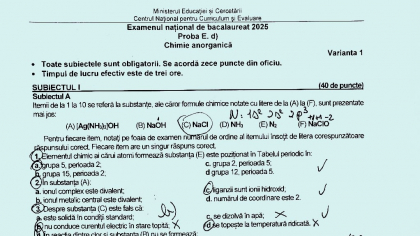 Ministerul Educației și Cercetării
Centrul Național pentru Curriculum și Evaluare
Examenul național de bacalaureat 2025
Proba E. d)
Chimie anorganică
Varianta 1
• Toate subiectele sunt obligatorii. Se acordă zece puncte din oficiu.
• Timpul de lucru efectiv este de trei ore.
SUBIECTUL I (40 de puncte)
Subiectul A
Itemii de la 1 la 10 se referă la substanțe, ale căror formule chimice notate cu litere de la (A) la (F), sunt prezentate
mai jos: N: 1s² 2s² 2p³
(A) [Ag(NH₃)₂]OH (B) NaOH (C) NaCl (D) NH₃ (E) N₂ (F) NaClO
Pentru fiecare item, notați pe foaia de examen numărul de ordine al itemului însoțit de litera corespunzătoare
răspunsului corect. Fiecare item are un singur răspuns corect.
1. Elementul chimic al cărui atom formează substanța (E) este poziționat în Tabelul periodic în:
a. grupa 5, perioada 2; c. grupa 2, perioada 5;
b. grupa 15, perioada 2; d. grupa 12, perioada 5.
2. În substanța (A):
a. ionul complex este divalent; c. liganzii sunt ionii hidroxid,
b. ionul metalic central este divalent; d. numărul de coordinare este 2.
3. Despre substanța (C) este fals că: b)
a. este solidă în condiții standard; c. se dizolvă în apă; x
b. nu conduce curentul electric în stare topită; x d. se topește la temperatură ridicată. x
4. În reacția dintre clor și substanța (B) nu se formează: